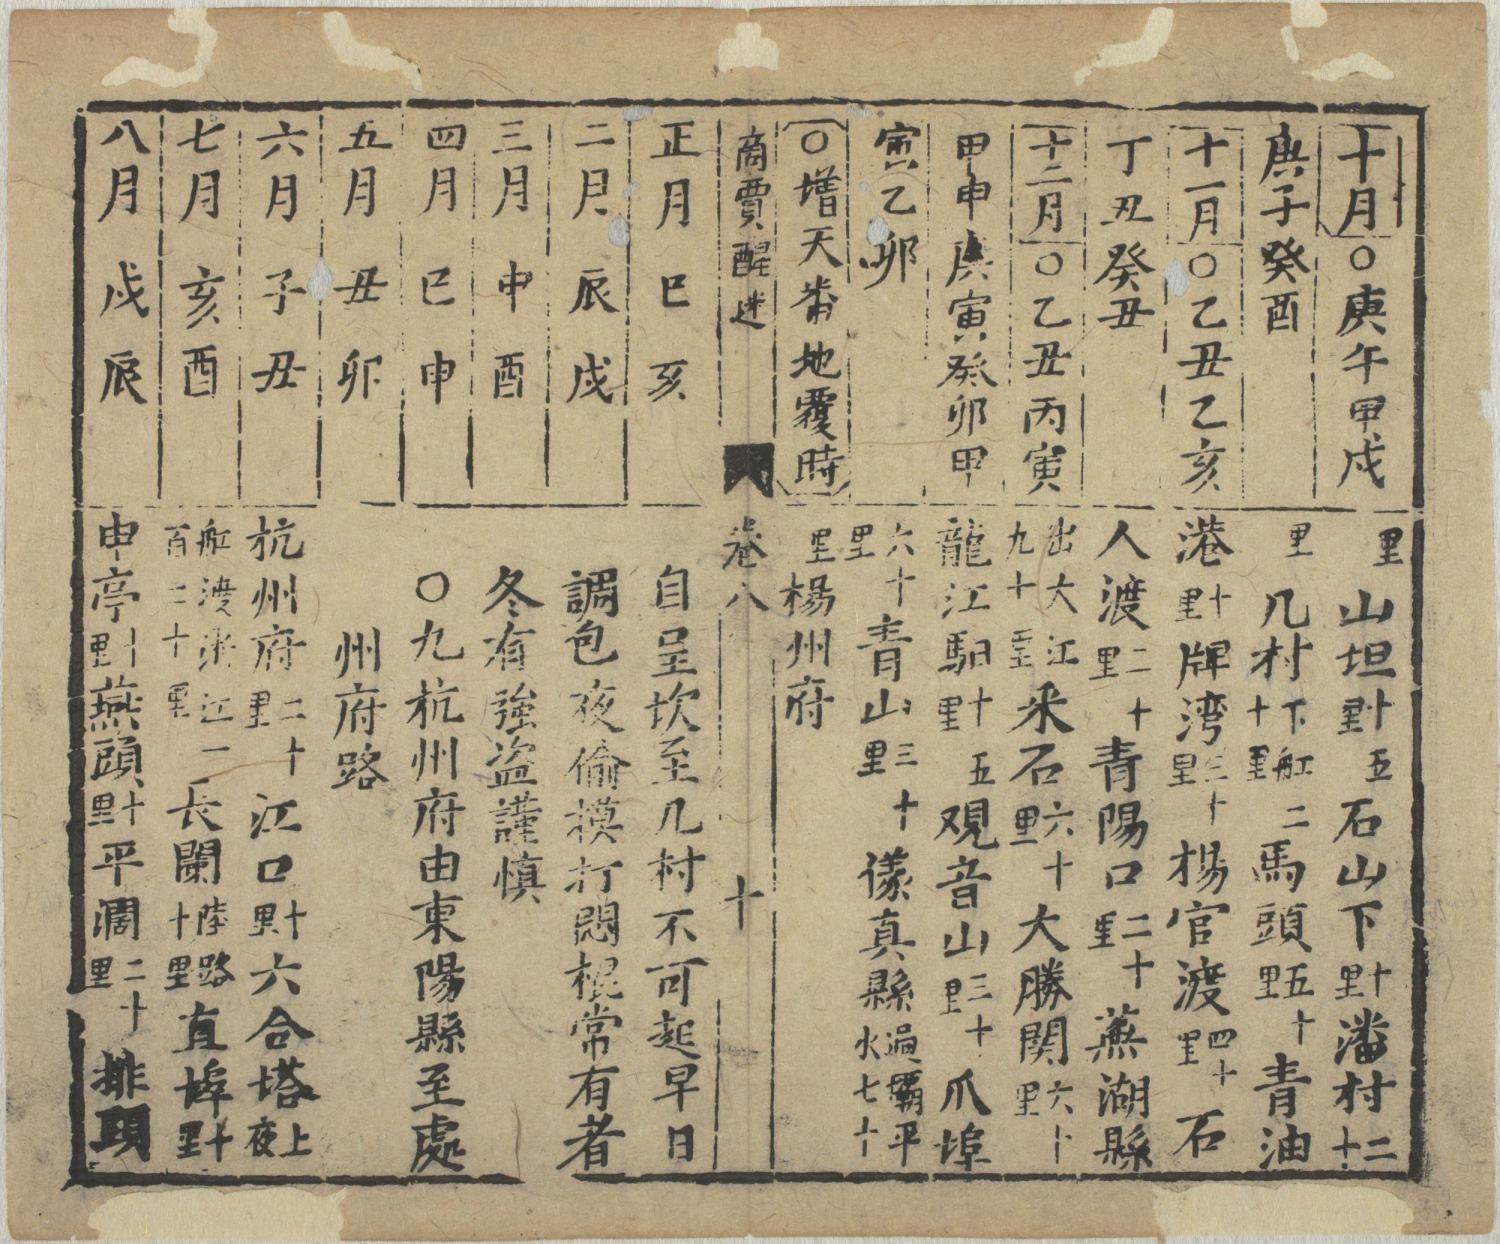 十月○庚午甲戌
庚子癸酉
十一月○乙丑乙亥
丁丑癸丑
十二月○乙丑丙寅
甲申庚寅癸卯甲
寅乙卯
○增天番地覆時
里山坦十五里石山下十里潘村二十
里几村下舡二十里馬頭五十里青油
港十里牌湾三十里楊官渡四十里石
人渡二十里青陽口二十里蕪湖縣
出大江九十里至采石六十里大勝関六十里
龍江馹十五里观音山三十里爪埠
六十里青山三十里儀真縣過壩平水七十
里楊州府
商賈醒迷 卷八 十
正月 巳 亥
二月 辰 戌
三月 申 酉
四月 巳 申
五月 丑 卯
六月 子 丑
七月 亥 酉
八月 戌 辰
自呈坎至几村不可起早日
調包夜偷摸打悶棍常有者
冬有強盗謹慎
○九杭州府由東陽縣至處
州府路
杭州府二十里江口十里六合塔上夜
舡渡浙江一百二十里長闌陸路十里直埠十里
申亭十里燕頭十里平濶二十里排頭